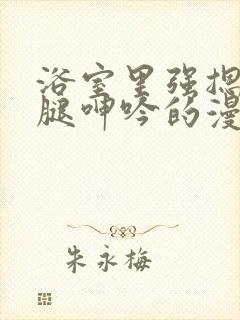 浴室里强摁
腿呻吟的漫
朱永梅